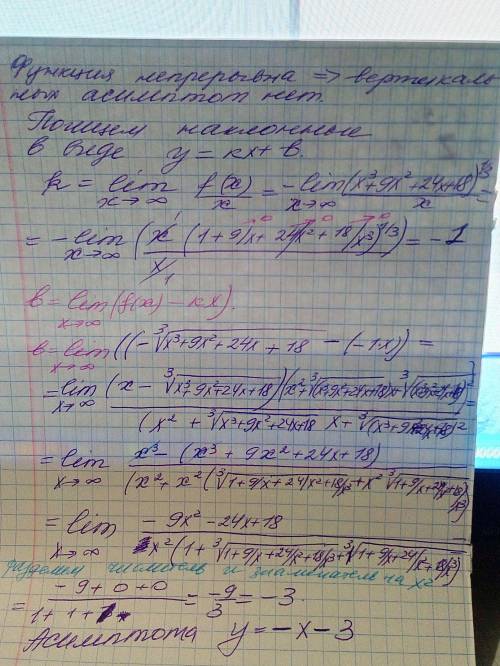 Функция непрерывна => вертикаль
ных асимптот нет.
Поищем наклонные
в виде y = kx + b.
k = lim x→∞ f(x)/x = -lim x→∞ (x³+9x²+24x+18)^1/3 / x =
= -lim x→∞ (x (1+9/x+24/x²+18/x³)^1/3 / x) = -1
b = lim x→∞ (f(x) - kx).
b = lim x→∞ ((-∛x³+9x²+24x+18 - (-1x)) =
= lim x→∞ (x - ∛x³+9x²+24x+18)(x² + ∛(x³+9x²+24x+18)x + ∛(x³+9x²+24x+18)²) / (x² + ∛x³+9x²+24x+18 x + ∛(x³+9x²+24x+18)² =
= lim x→∞ x³ - (x³ + 9x² + 24x + 18) / (x² + x²(∛1+9/x+24/x²+18/x³ + x² ∛1+9/x+24/x²+18/x³)
= lim x→∞ -9x² - 24x + 18 / x²(1 + ∛1+9/x+24/x²+18/x³ + ∛1+9/x+24/x²+18/x³) =
разделим числитель и знаменатель на x²
= -9 + 0 + 0 / 1 + 1 + 1 = -9/3 = -3.
Асимптота y = -x - 3